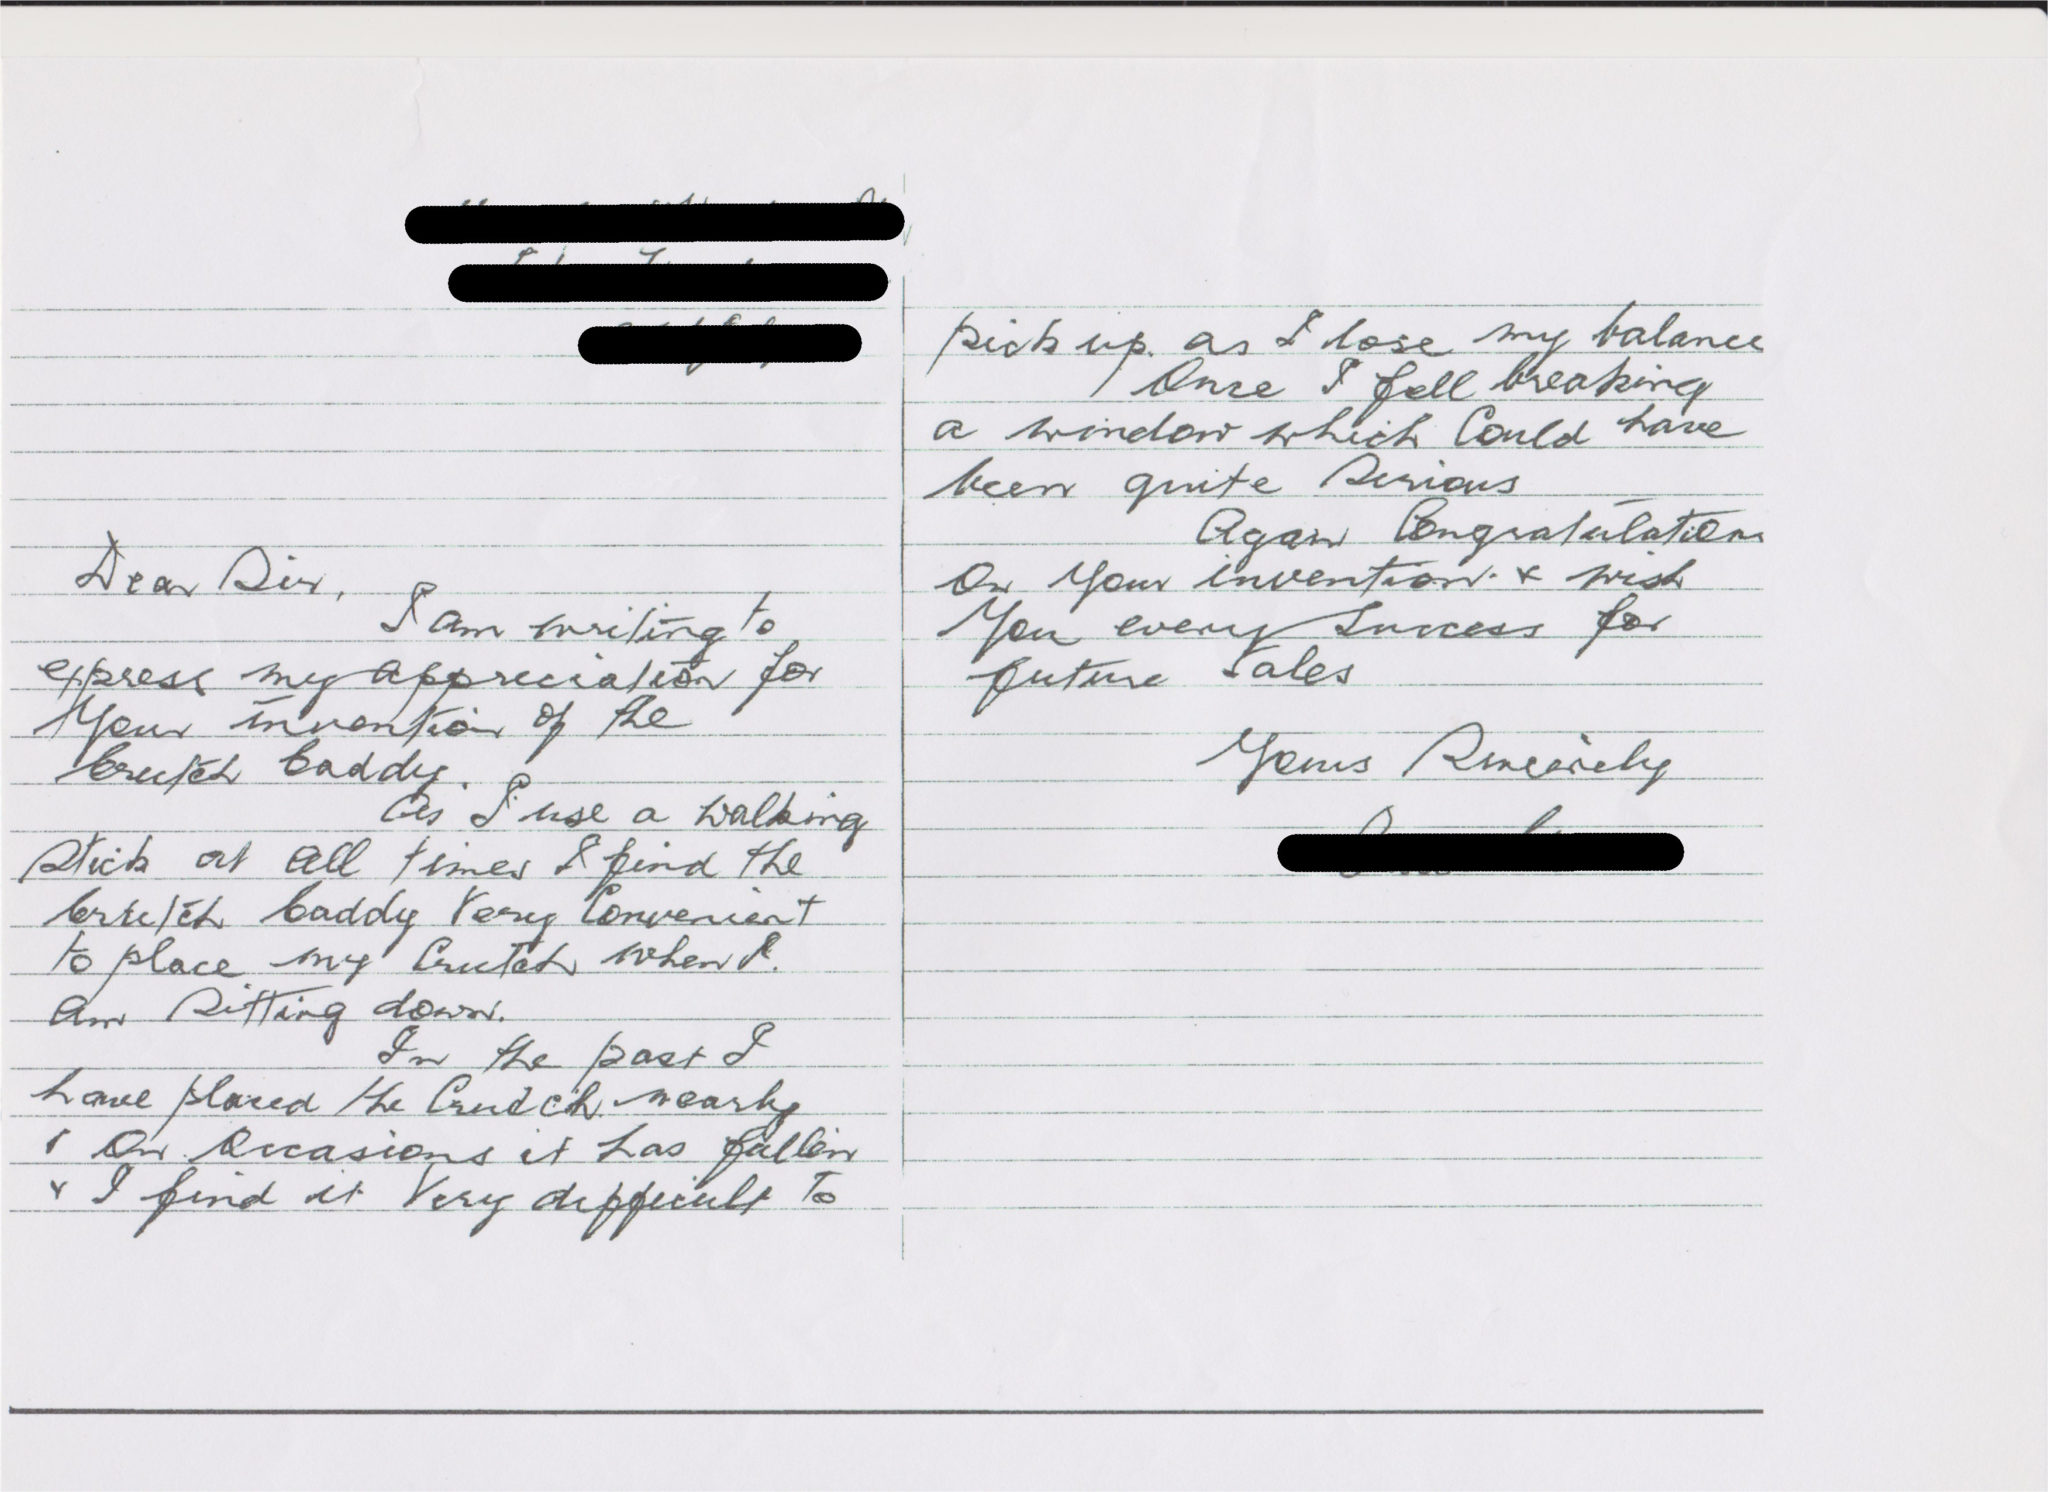 Dear Sir,
I am writing to
express my appreciation for
Your invention of the
Crutch Caddy.
As I use a walking
stick at all times I find the
Crutch Caddy Very Convenient
to place my Crutch when I.
am sitting down.
In the past I
have placed the Crutch nearby
& On Occasions it has fallen
& I find it Very difficult to
pick up. as I lose my balance
Once I fell breaking
a window which Could have
been quite Serious
Again Congratulations
On Your invention. & wish
You every Success for
future Sales
Yours Sincerely